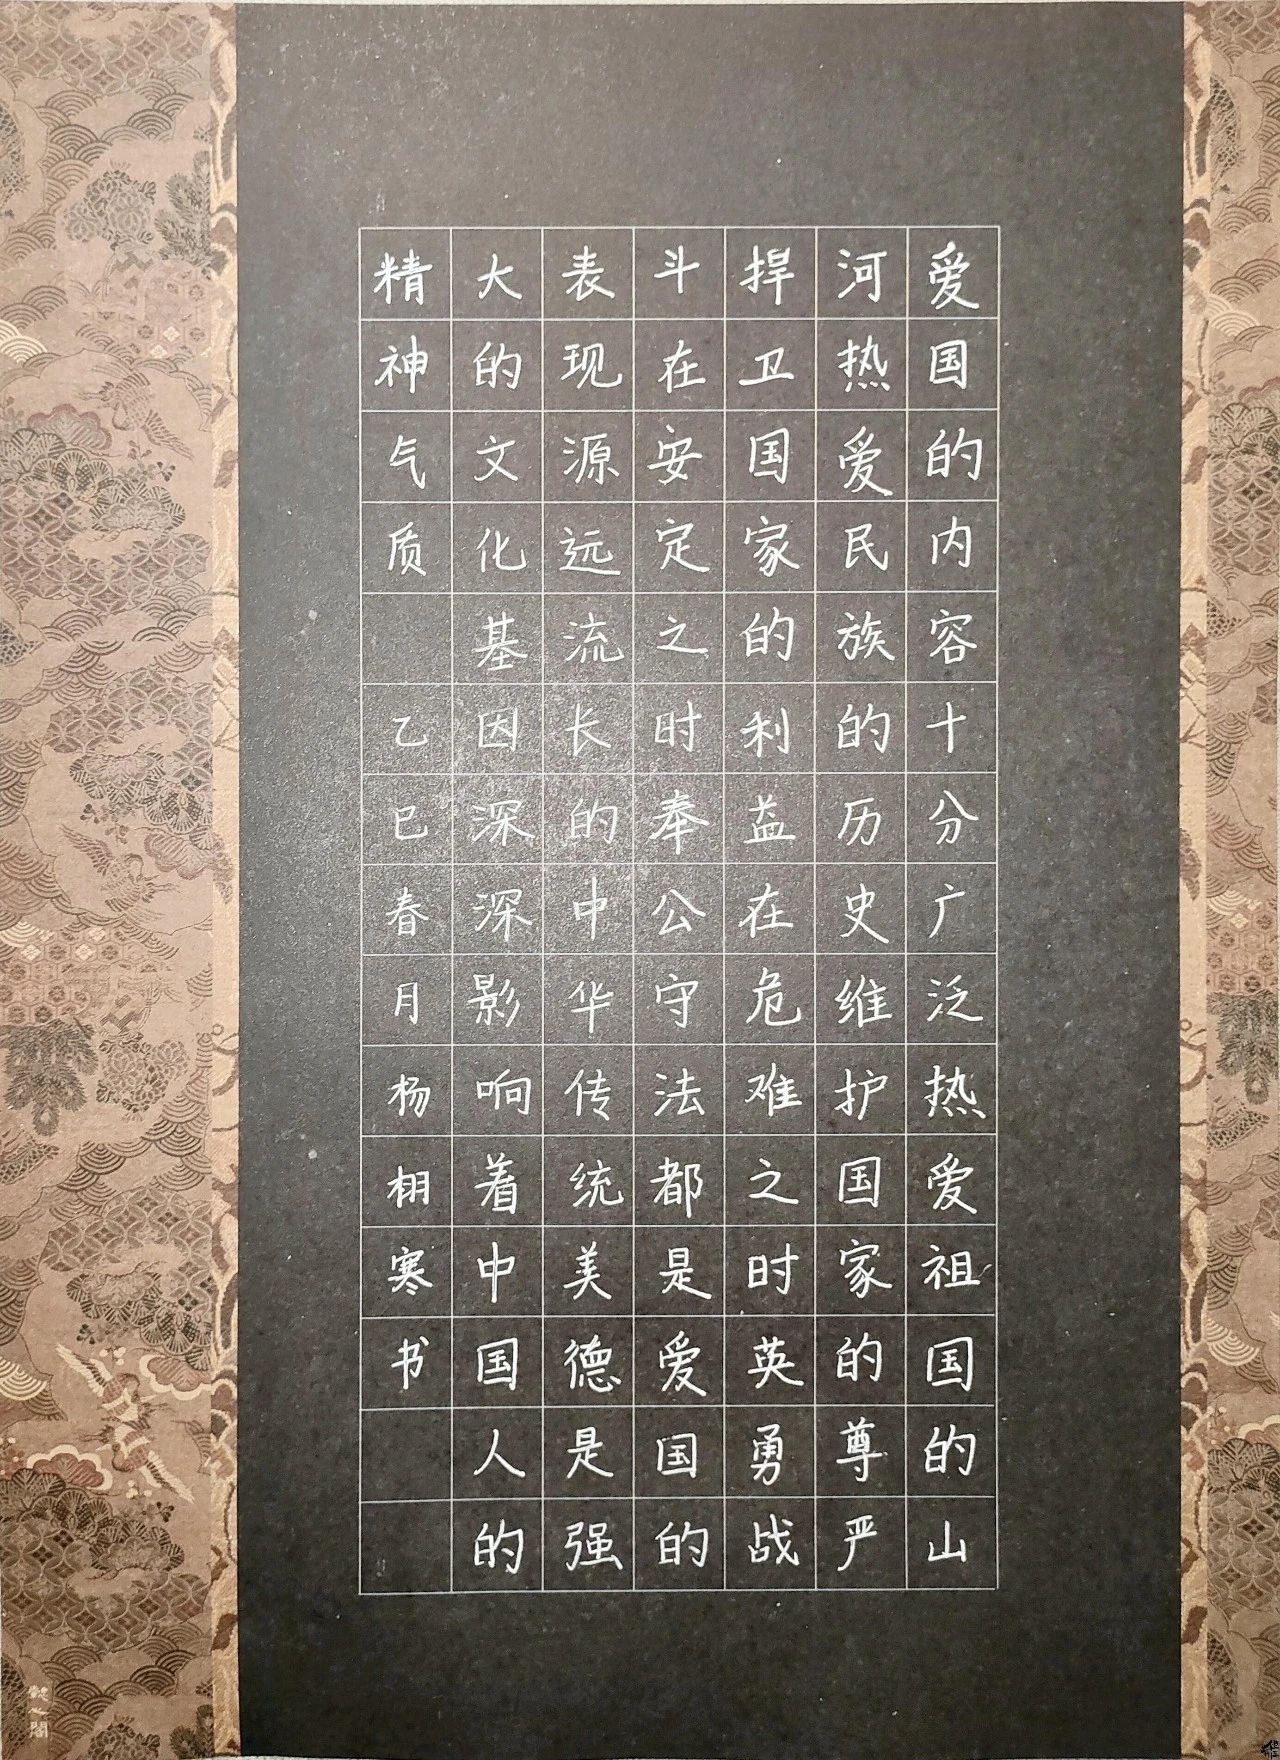 爱国的内容十分广泛热爱祖国的山
河热爱民族的历史维护国家的尊严
捍卫国家的利益在危难之时英勇战
斗在安定之时奉公守法都是爱国的
表现源远流长的中华传统美德是强
大的文化基因深深影响着中国人的
精神气质 乙巳春月杨栩寒书